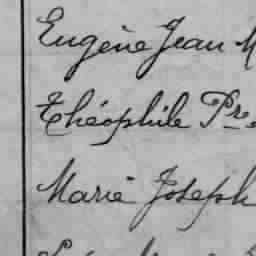 Eugène Jean M
Théophile Pre
Marie Joseph